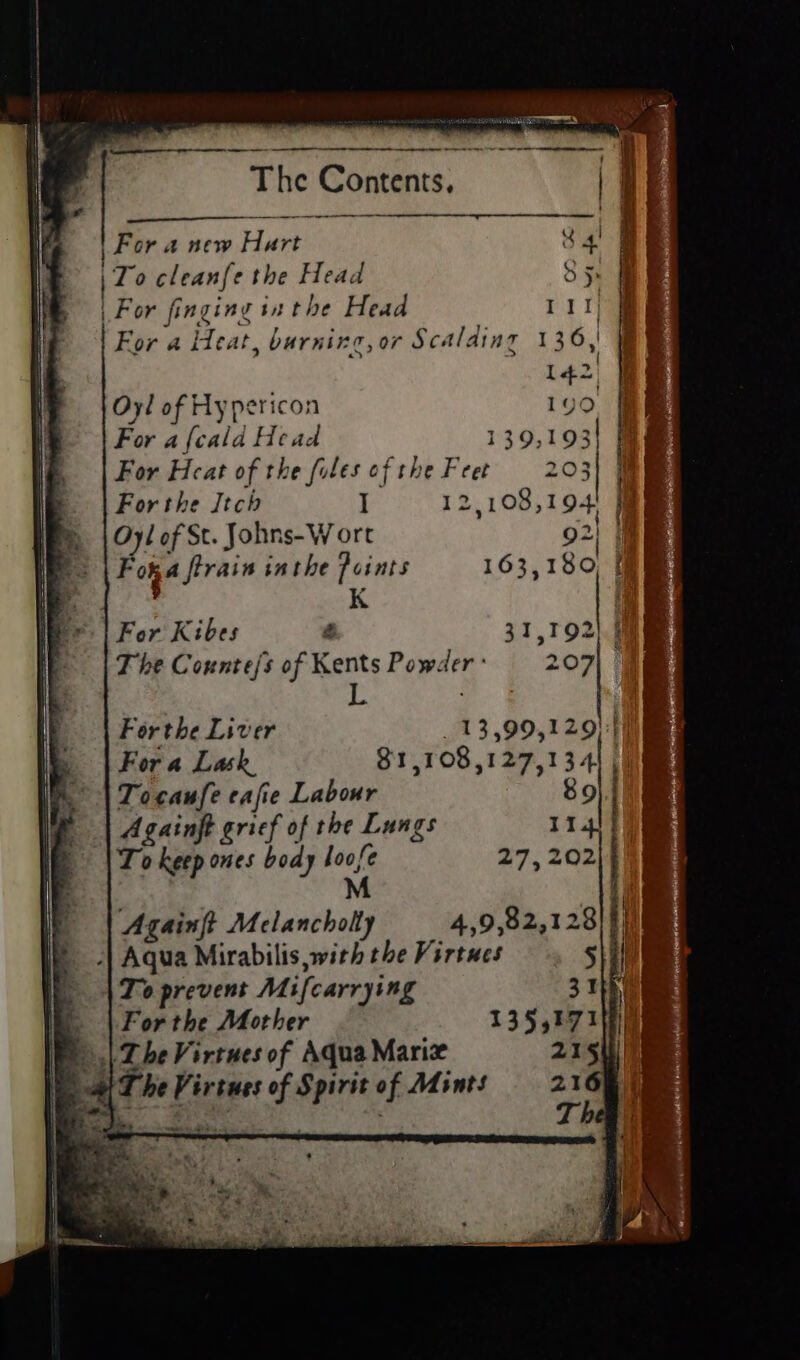 The Contents,
For a new Hurt 84
To cleanſe the Head 85
For ſinging in the Head 111
For a Heat, burning, or Scalding 136,
142
Oyl of Hypericon 190
For a ſcald Head 139,193
For Heat of the ſoles of the Feet 203
For the Itch I 12,108,194
Oyl of St. Johns-Wort 92
For a ſtrain in the Joints 163,180
K
For Kibes & 31,192
The Counteſs of Kents Powder 207
L
For the Liver 13,99,129
For a Lask 81,108,127,134
To cauſe eaſie Labour 89
Againſt grief of the Lungs 114
To keep ones body looſe 27,202
M
Againſt Melancholly 4,9,82,128
Aqua Mirabilis, with the Virtues 5
To prevent Miſcarrying 31
For the Mother 135,171
The Virtues of Aqua Mariæ 215
The Virtues of Spirit of Mints 216
The